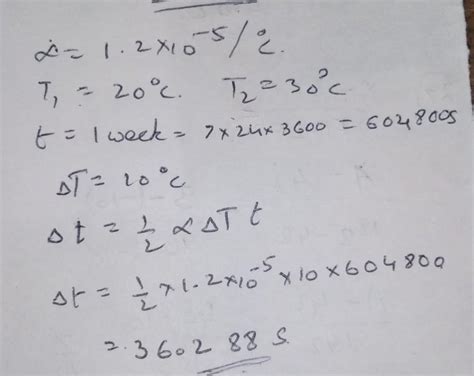 α = 1.2×10⁻⁵/°C.
T₁ = 20°C. T₂ = 30°C
t = 1 week = 7×24×3600 = 604800s
ΔT = 10°C
Δt = 1/2 α ΔT t
Δt = 1/2 × 1.2×10⁻⁵ × 10 × 604800
= 36.0288 s.